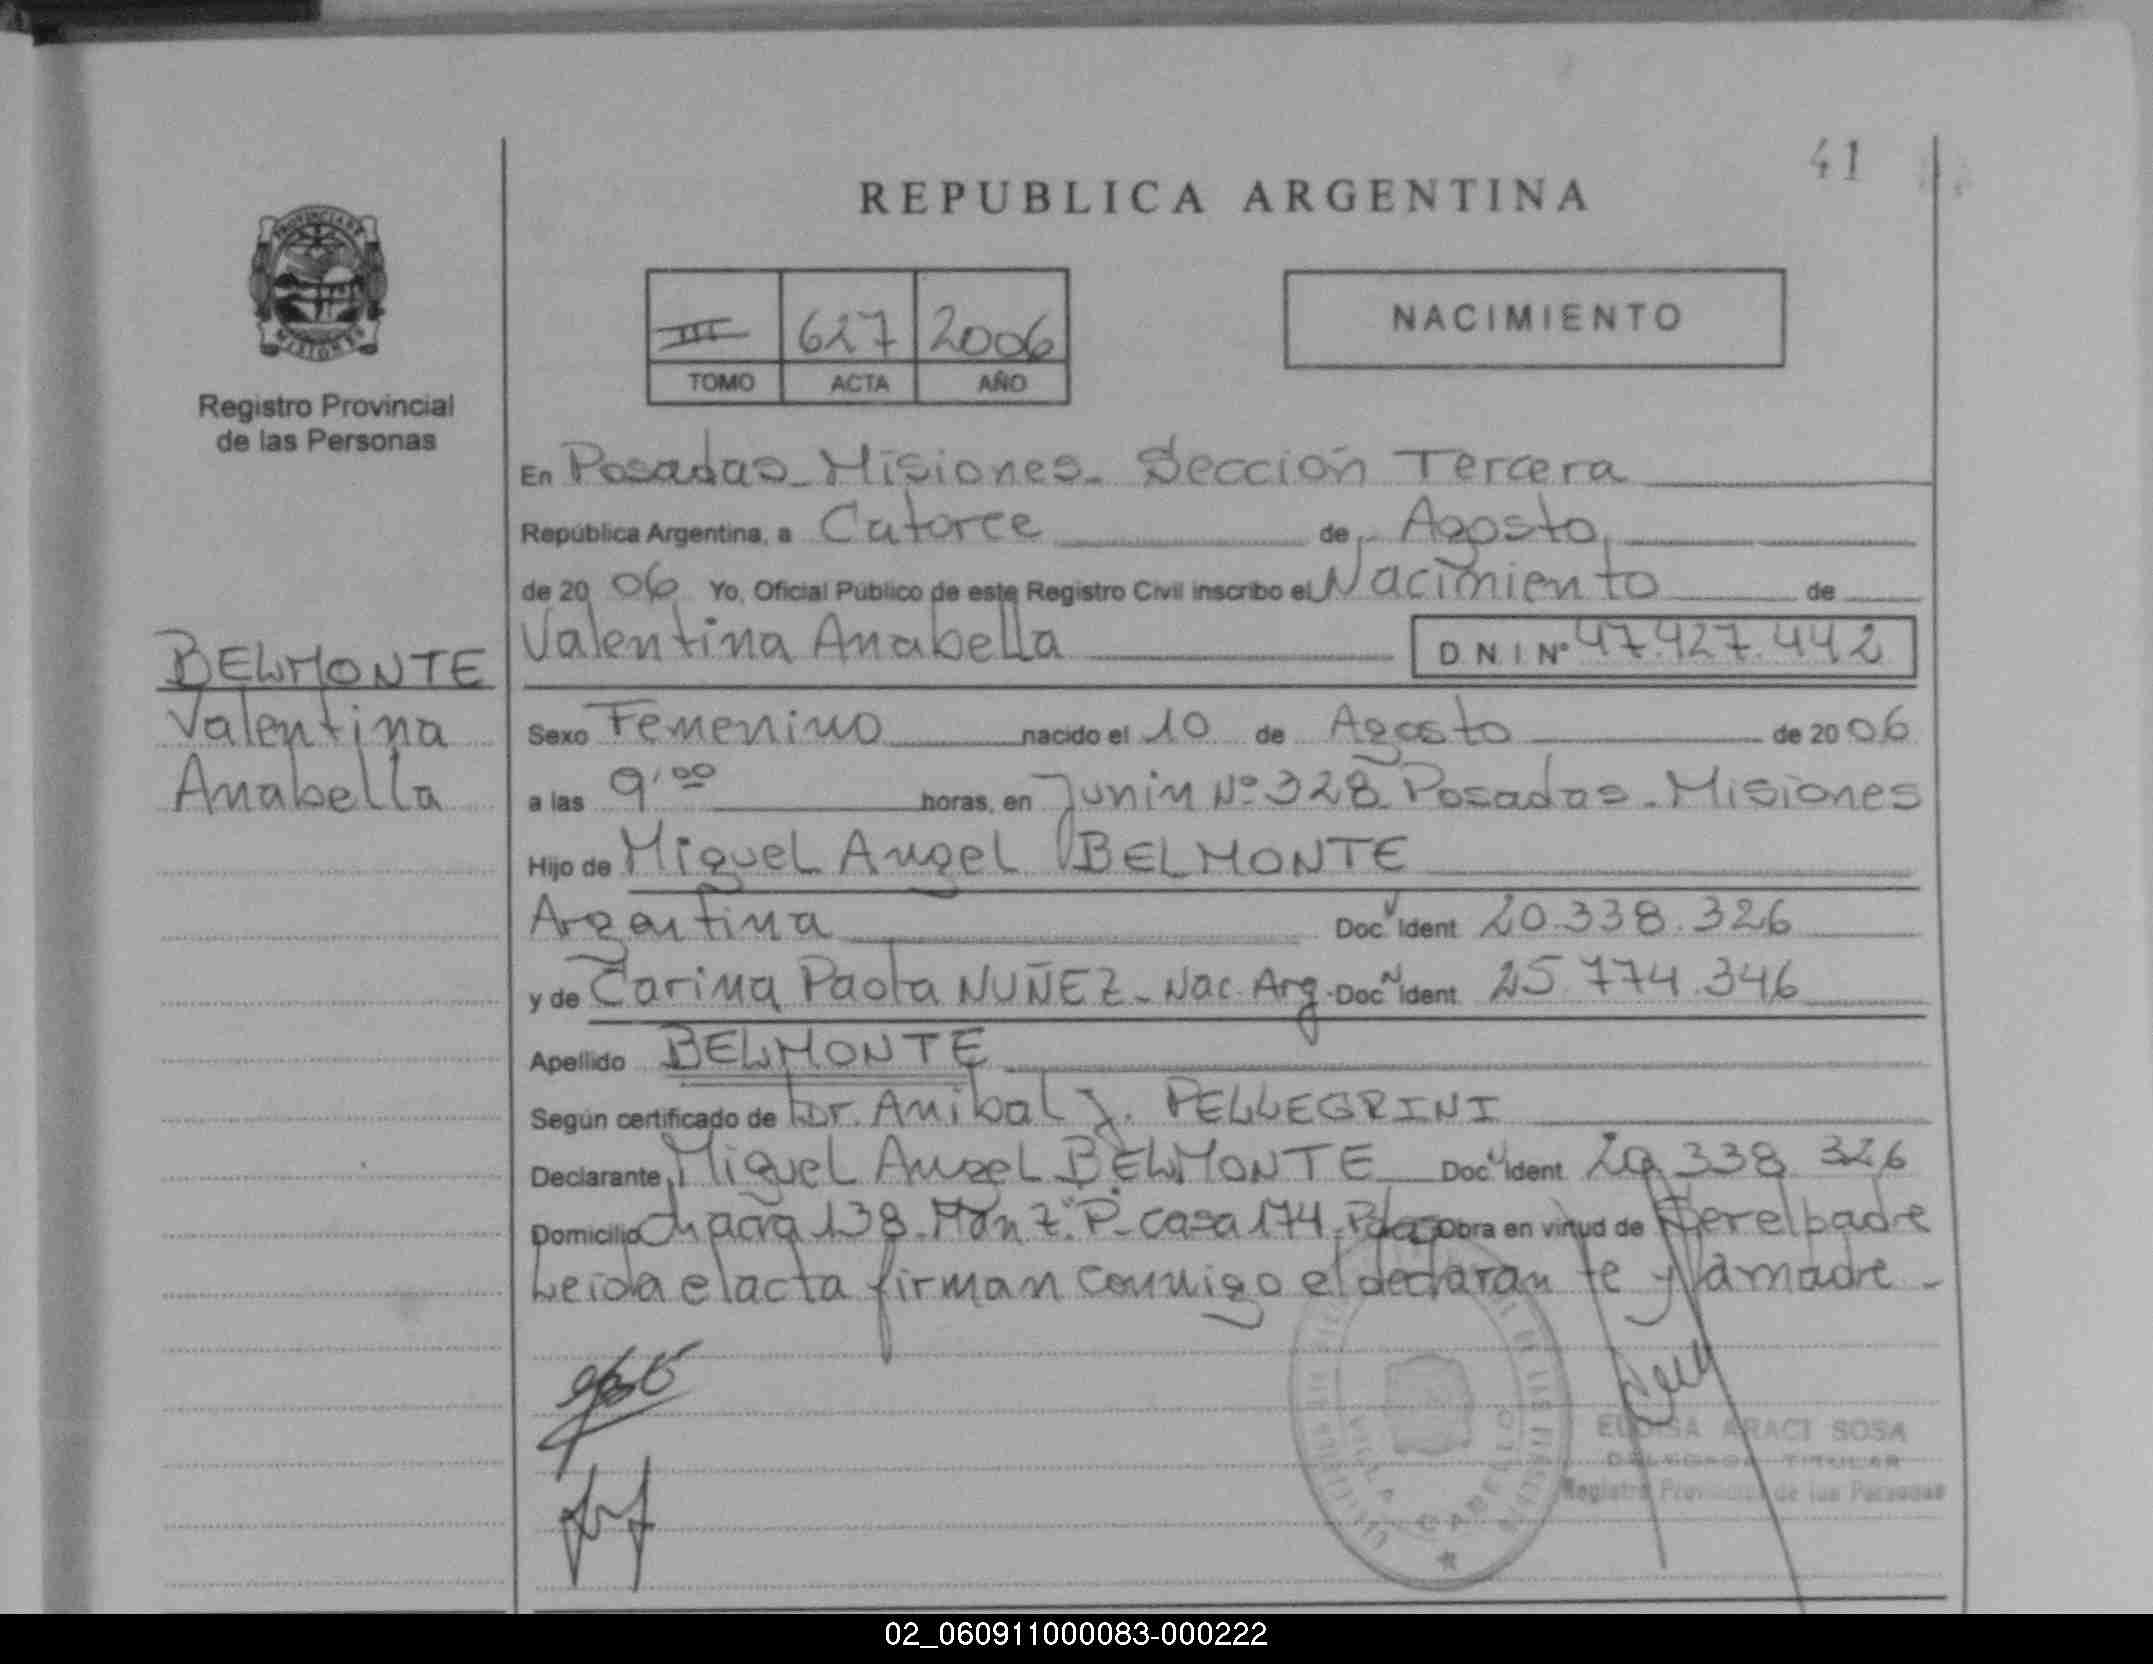 41
REPUBLICA ARGENTINA
PROVINCIA DE
MISIONES
Registro Provincial
de las Personas
III 627 2006
TOMO ACTA AÑO
NACIMIENTO
En Posadas - Misiones - Sección Tercera
República Argentina, a Catorce de Agosto
de 20 06 Yo, Oficial Público de este Registro Civil inscribo el Nacimiento de
Valentina Anabella D N I Nº 47.427.442
BELMONTE
Valentina
Anabella
Sexo Femenino nacido el 10 de Agosto de 20 06
a las 9'00 horas, en Junin Nº 328 Posadas - Misiones
Hijo de Miguel Angel BELMONTE
Argentina Doc Ident 20.338.326
y de Carina Paola NUÑEZ - Nac. Arg. Doc Ident 25.774.346
Apellido BELMONTE
Según certificado de Dr. Anibal J. PELLEGRINI
Declarante Miguel Angel BELMONTE Doc Ident 20.338.326
Domicilio Chacra 138 - Manz. "P" - casa 174 - Pdas Obra en virtud de Ser el padre
Leida el acta firman conmigo el declarante y la madre -
VILLA CABELLO
ELOISA ARACI SOSA
DELEGADA TITULAR
Registro Provincial de las Personas
02_060911000083-000222